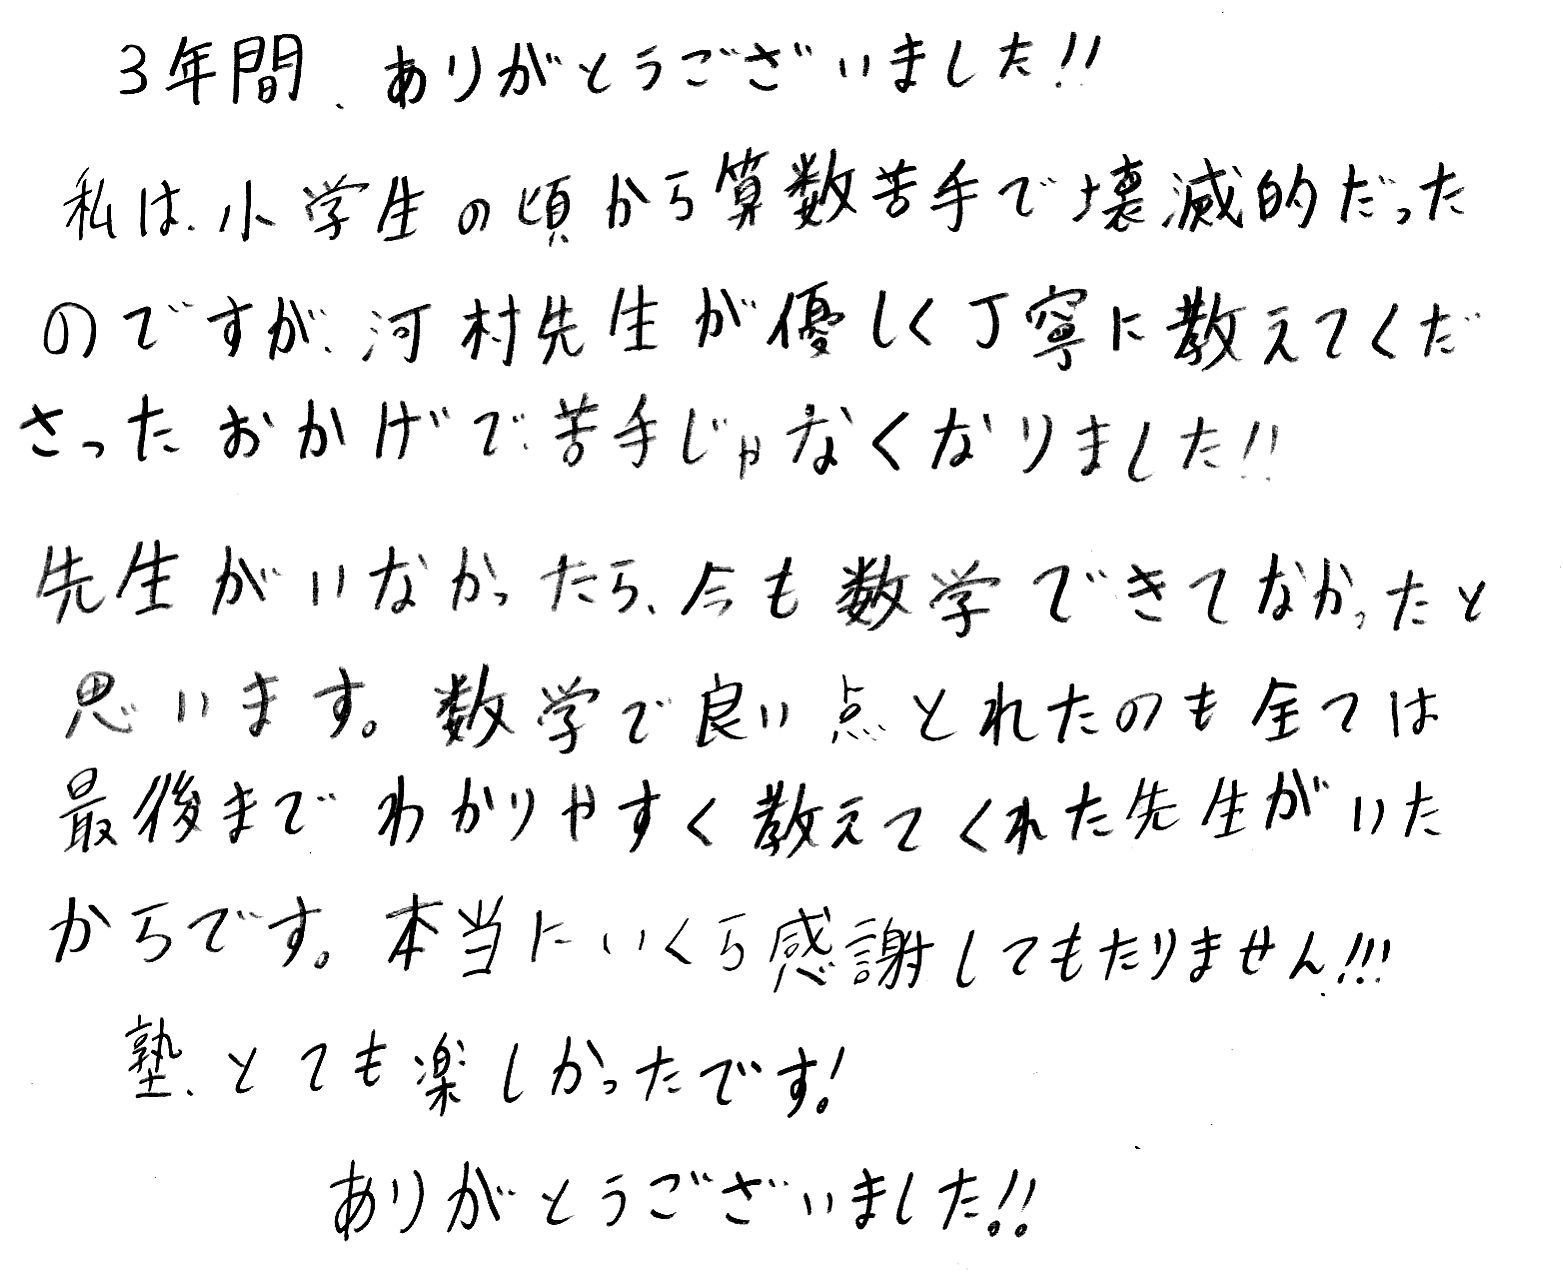 3年間、ありがとうございました!!
私は、小学生の頃から算数苦手で壊滅的だった
のですが、河村先生が優しく丁寧に教えてくだ
さったおかげで、苦手じゃなくなりました!!
先生がいなかったら、今も数学できてなかったと
思います。数学で良い点とれたのも全ては
最後までわかりやすく教えてくれた先生がいた
からです。本当にいくら感謝してもたりません!!!
塾、とても楽しかったです!
ありがとうございました!!